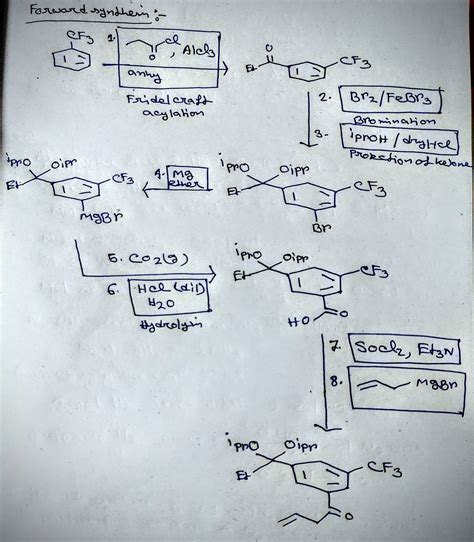 Forward synthesis :-
CF3
1. Cl
O , AlCl3
anhy
Fridel craft
acylation
O
Et
CF3
2. Br2/FeBr3
Bromination
3. iprOH / dryHCl
Protection of ketone
iprO Oipr
Et
CF3
MgBr
4. Mg
ether
iprO Oipr
Et
CF3
Br
5. CO2(g)
6. HCl (dil)
H2O
Hydrolysis
iprO Oipr
Et
CF3
HO O
7. SOCl2, Et3N
8. MgBr
iprO Oipr
Et
CF3
O